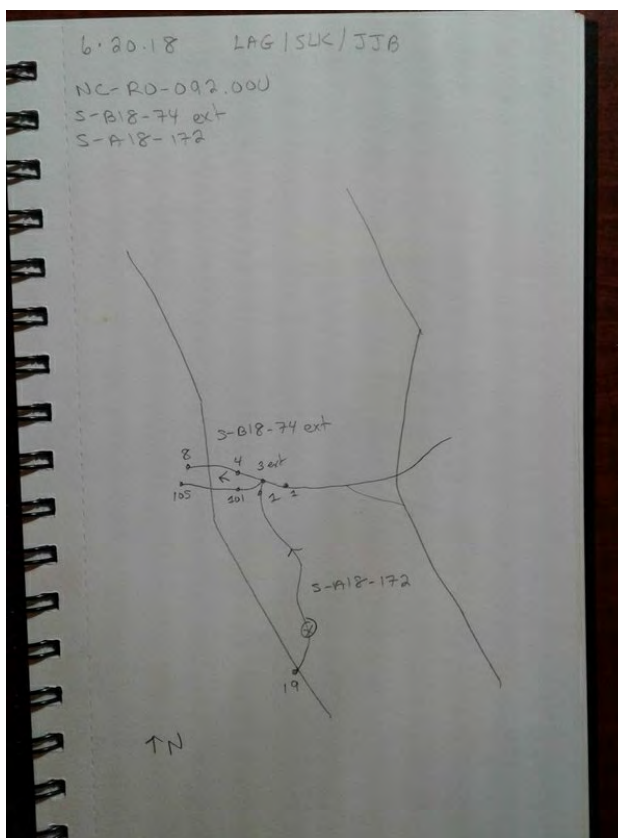 6.20.18 LAG/SLK/JJB
NC-RO-092.000
S-B18-74 ext
S-A18-172
S-B18-74 ext
8 4 3 ext
105 101 1 1
S-A18-172
19
↑N